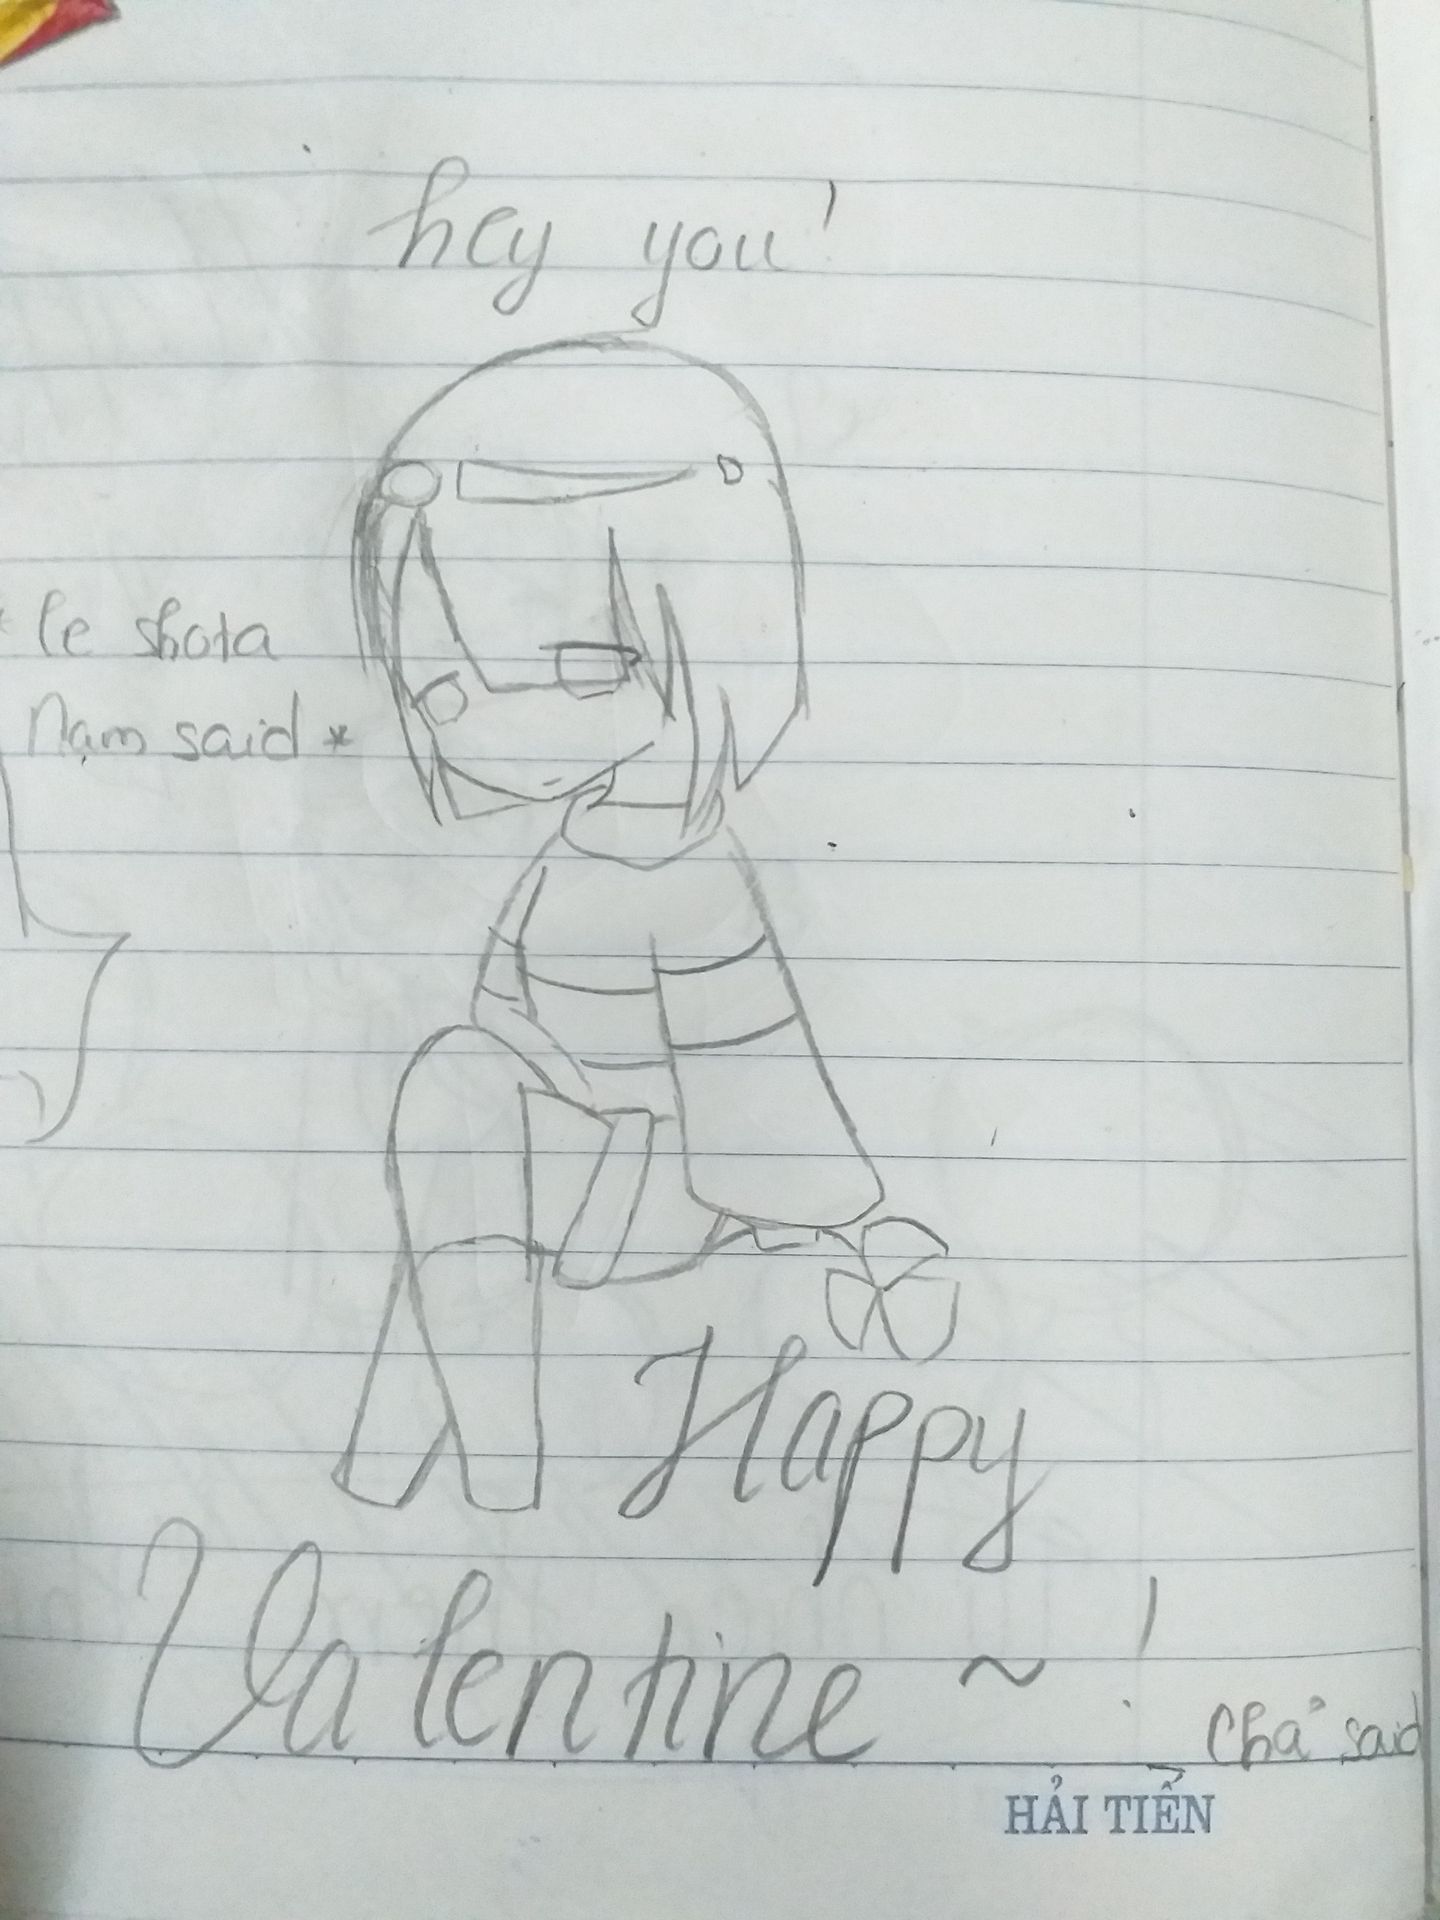 hey you!
* le shota
Nạm said *
Happy
Valentine ~ !
Chả said
HẢI TIẾN